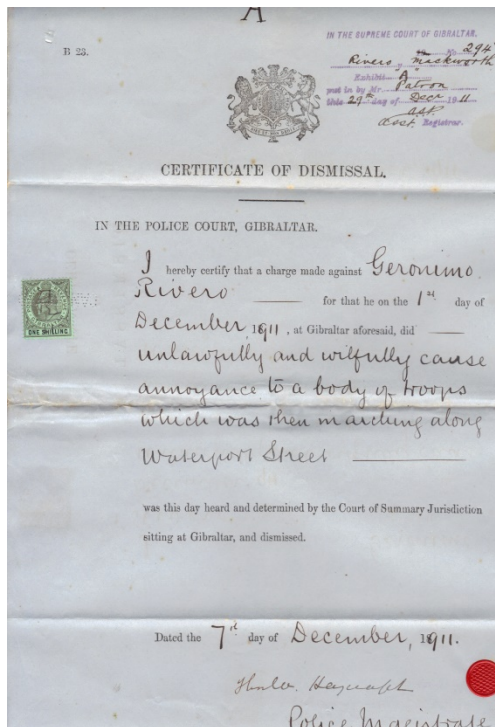 A
B 23.
IN THE SUPREME COURT OF GIBRALTAR.
No. 294
Rivero v. Mackworth
Exhibit "A"
put in by Mr. Patron
this 29th day of Decr 1911
Asst. Registrar.
CERTIFICATE OF DISMISSAL.
IN THE POLICE COURT, GIBRALTAR.
I hereby certify that a charge made against Geronimo
Rivero for that he on the 1st day of
December 1911, at Gibraltar aforesaid, did
unlawfully and wilfully cause
annoyance to a body of troops
which was then marching along
Waterport Street
ONE SHILLING
was this day heard and determined by the Court of Summary Jurisdiction
sitting at Gibraltar, and dismissed.
Dated the 7th day of December, 1911.
Police Magistrate